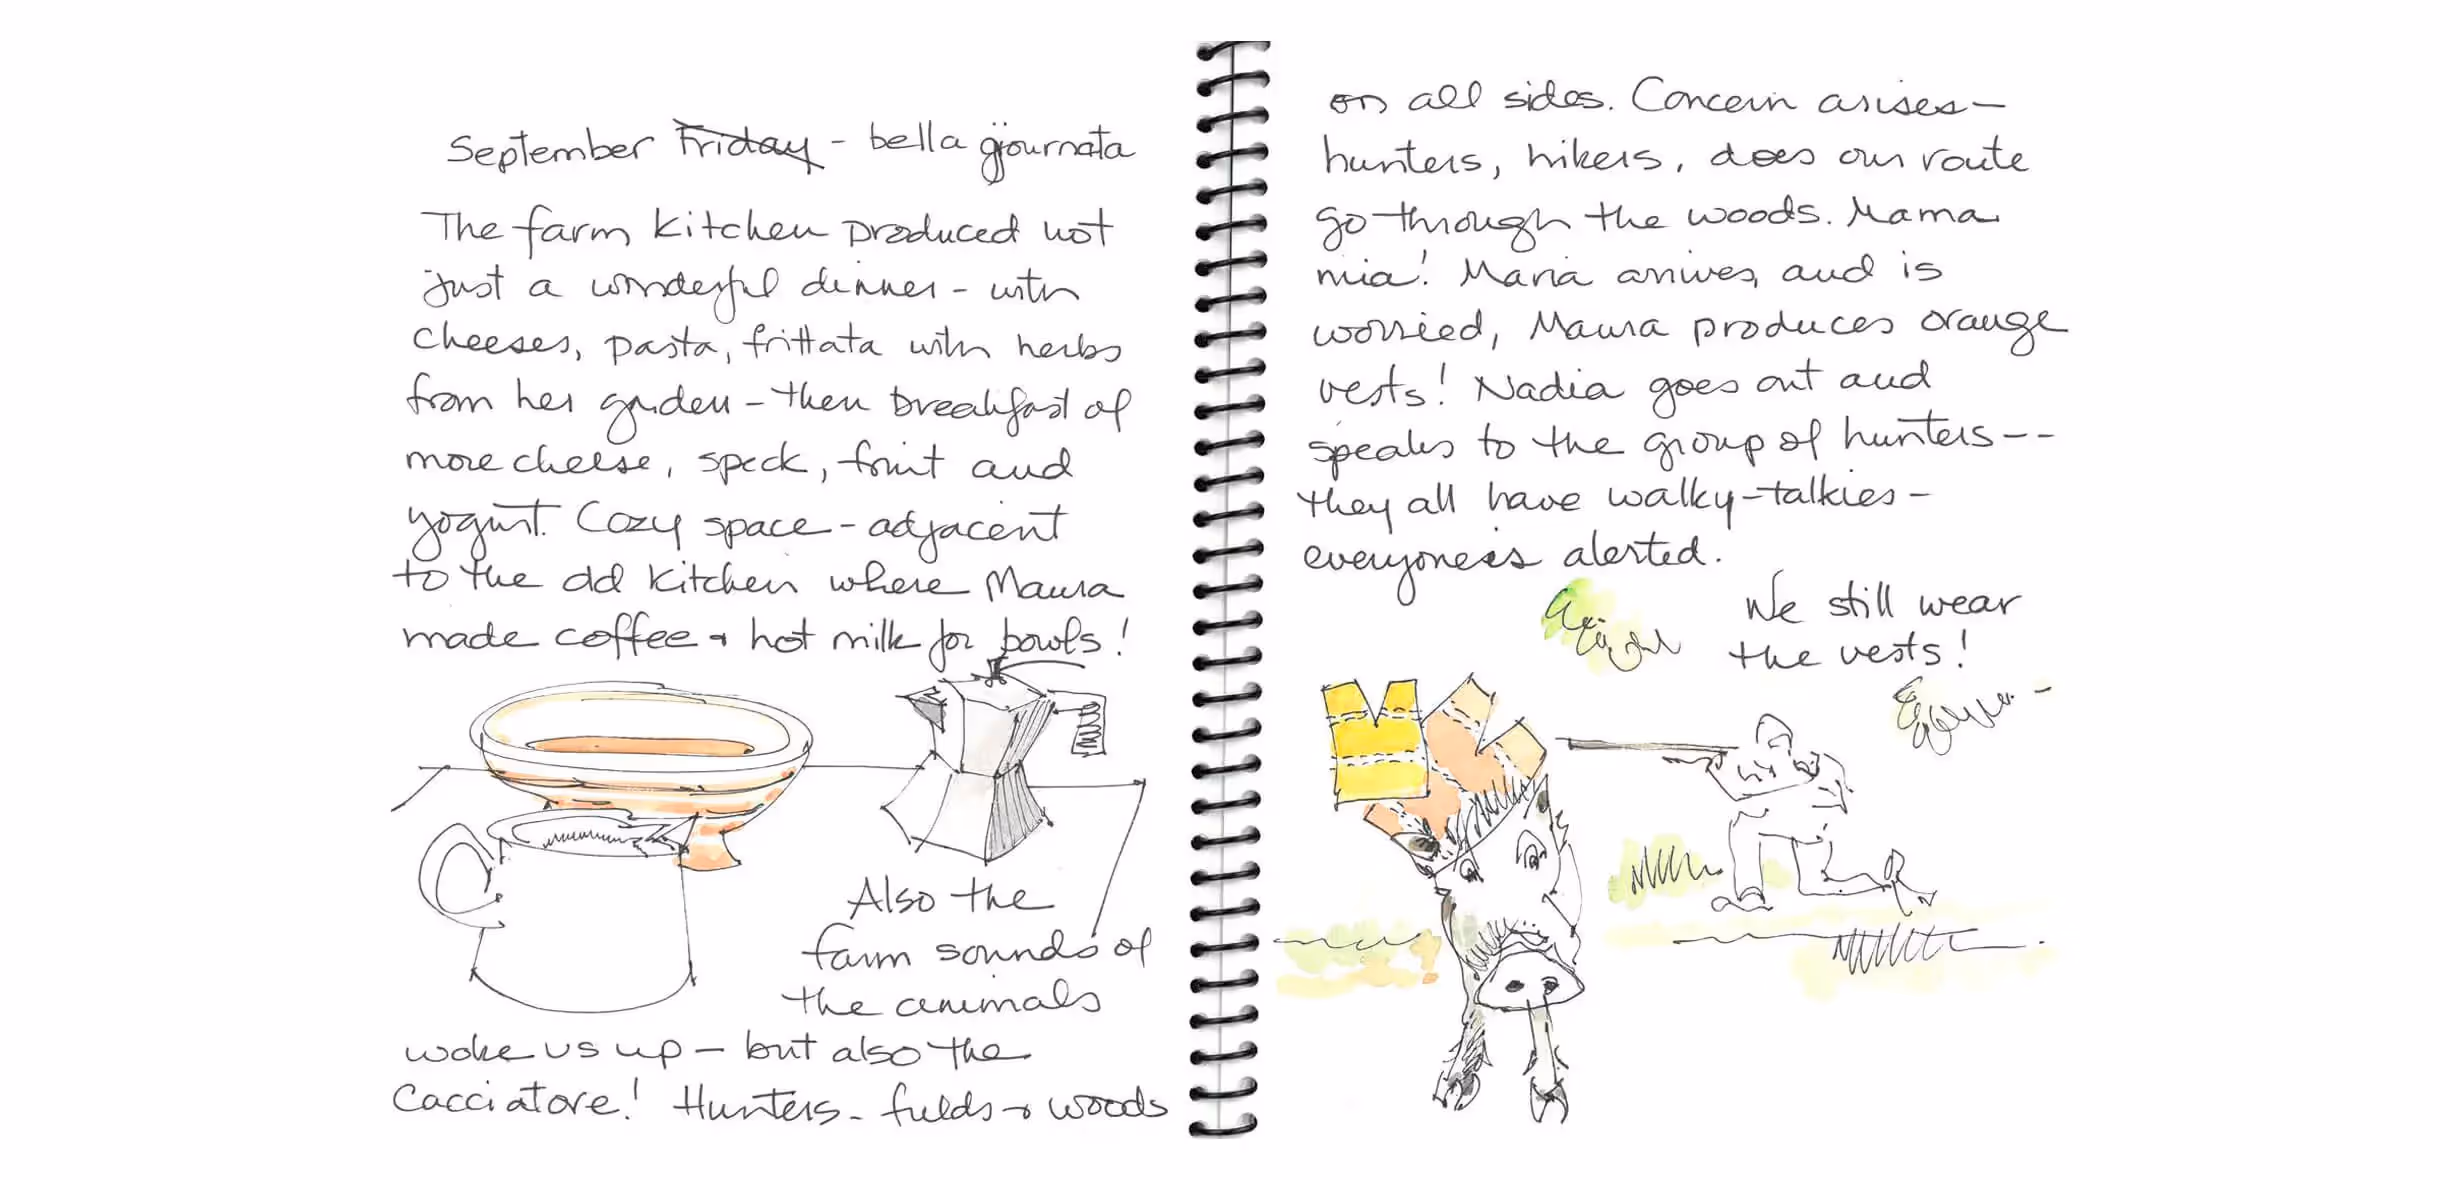 September Friday - bella giournata
The farm kitchen produced not
just a wonderful dinner - with
cheeses, pasta, frittata with herbs
from her garden - then breakfast of
more cheese, speck, fruit and
yogurt. Cozy space - adjacent
to the old kitchen where Maura
made coffee + hot milk for bowls!
Also the
farm sounds of
the animals
woke us up - but also the
Cacciatore! Hunters - fields + woods
on all sides. Concern arises -
hunters, hikers, does our route
go through the woods. Mama
mia! Maria arrives, and is
worried, Maura produces orange
vests! Nadia goes out and
speaks to the group of hunters --
they all have walky-talkies -
everyone is alerted.
We still wear
the vests!